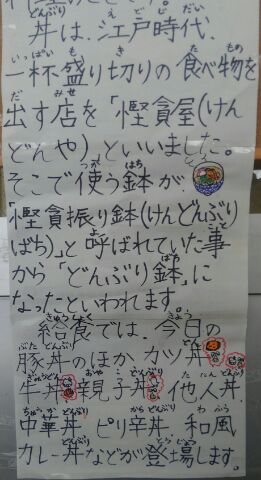 丼は、江戸時代、
一杯盛り切りの食べ物を
出す店を「慳貪屋(けん
どんや)」といいました。
そこで使う鉢が
「慳貪振り鉢(けんどんぶり
ばち)」と呼ばれていた事
から「どんぶり鉢」に
なったといわれます。
給食では、今日の
豚丼のほか カツ丼
牛丼 親子丼 他人丼
中華丼 ピリ辛丼 和風
カレー丼などが登場します。